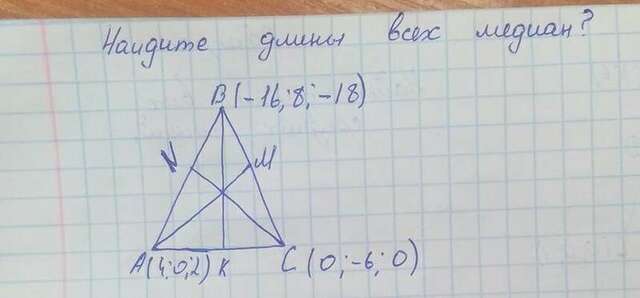 Найдите длины всех медиан?
B(-16;8;-18)
N M
A(4;0;2) K C(0;-6;0)